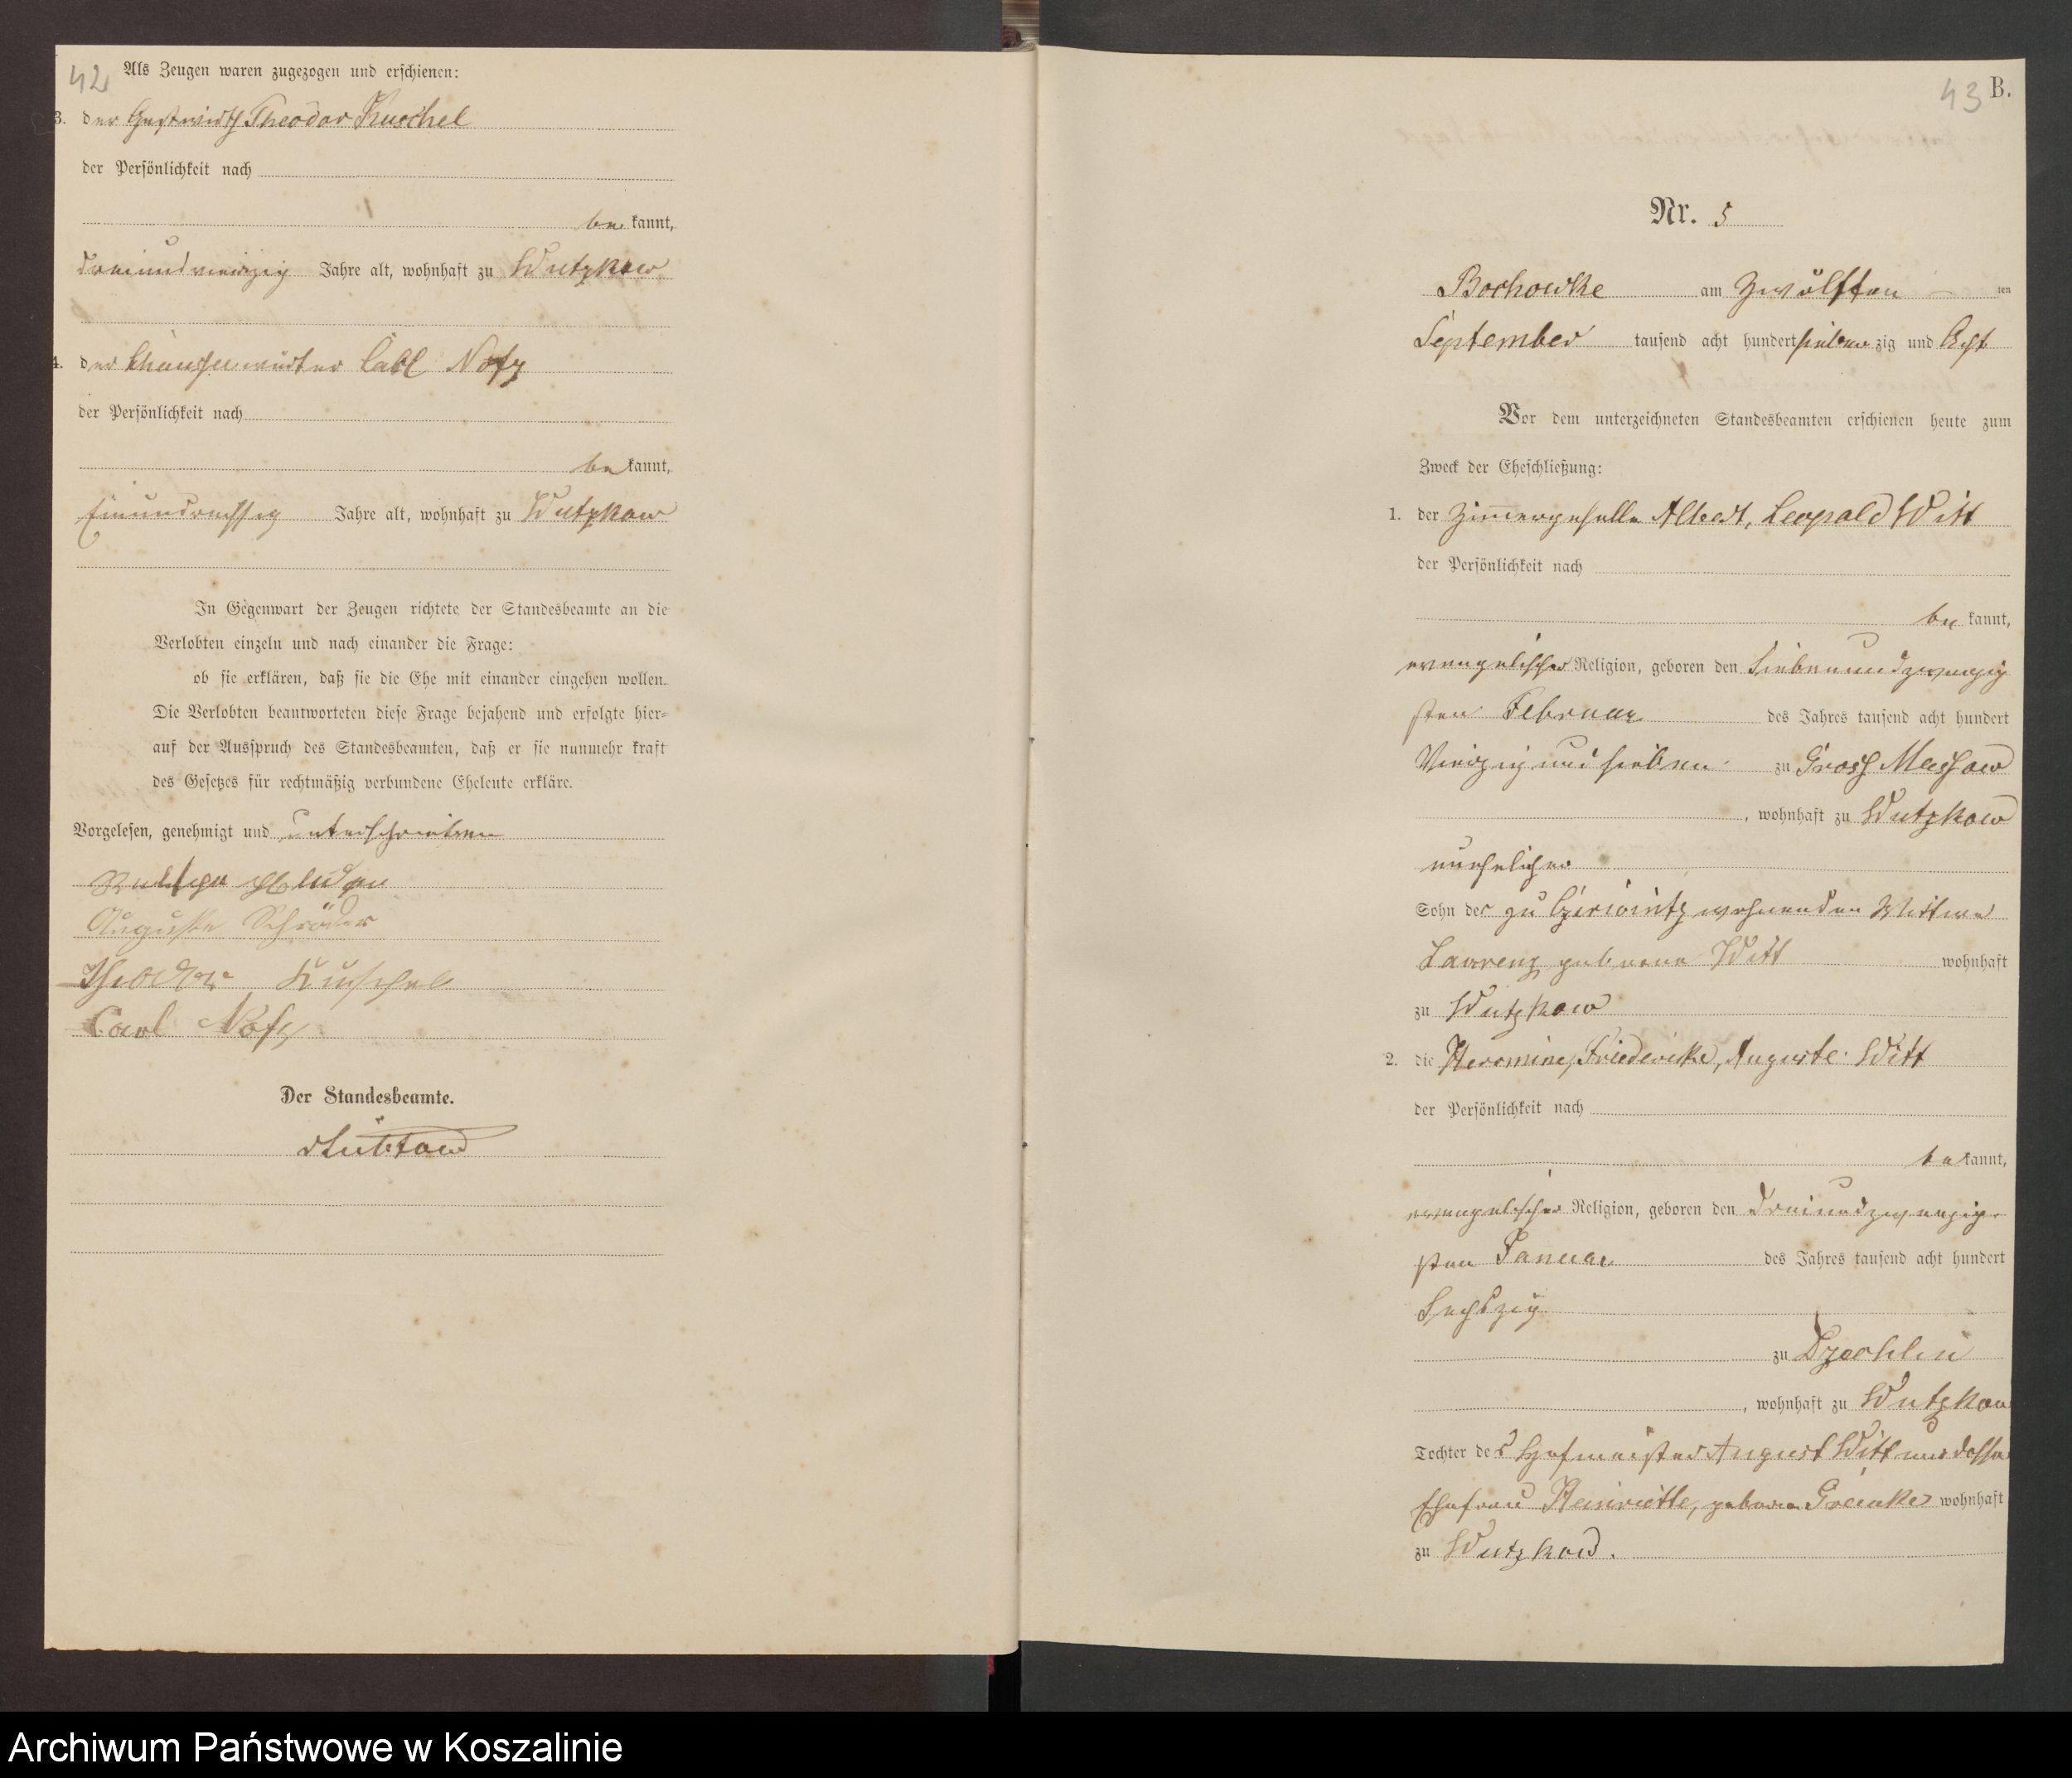 42
Als Zeugen waren zugezogen und erschienen:
3. der Gastwirth Theodor Kuschel
der Persönlichkeit nach
be kannt,
dreiundvierzig Jahre alt, wohnhaft zu Wutzkow
4. der Chausseewärter Carl Notz
der Persönlichkeit nach
be kannt,
Einundreissig Jahre alt, wohnhaft zu Wutzkow
In Gegenwart der Zeugen richtete der Standesbeamte an die
Verlobten einzeln und nach einander die Frage:
ob sie erklären, daß sie die Ehe mit einander eingehen wollen.
Die Verlobten beantworteten diese Frage bejahend und erfolgte hier-
auf der Ausspruch des Standesbeamten, daß er sie nunmehr kraft
des Gesetzes für rechtmäßig verbundene Eheleute erkläre.
Vorgelesen, genehmigt und unterschrieben
Auguste Schröder
Theodor Kuschel
Carl Notz
Der Standesbeamte.
43 B.
Nr. 5
Bochowke am Zwölften ten
September tausend acht hundert sieben zig und Acht
Vor dem unterzeichneten Standesbeamten erschienen heute zum
Zweck der Eheschließung:
1. der Zimmergeselle Albert, Leopold Witt
der Persönlichkeit nach
be kannt,
evangelischer Religion, geboren den Siebenundzwanzig
sten Februar des Jahres tausend acht hundert
Vierzig und sieben zu Gross Massow
, wohnhaft zu Wutzkow
unehelicher
Sohn der zu Czerwintz wohnenden Wittwe
Lavrenz geborene Witt wohnhaft
zu Wutzkow
2. die Hermine, Friedericke, Auguste Witt
der Persönlichkeit nach
be kannt,
evangelischer Religion, geboren den dreiundzwanzig
sten Januar des Jahres tausend acht hundert
Sechszig
zu Dzechlin
, wohnhaft zu Wutzkow
Tochter des Hofmeister August Witt und dessen
Ehefrau Henriette, geborene Greinke wohnhaft
zu Wutzkow.
Archiwum Państwowe w Koszalinie